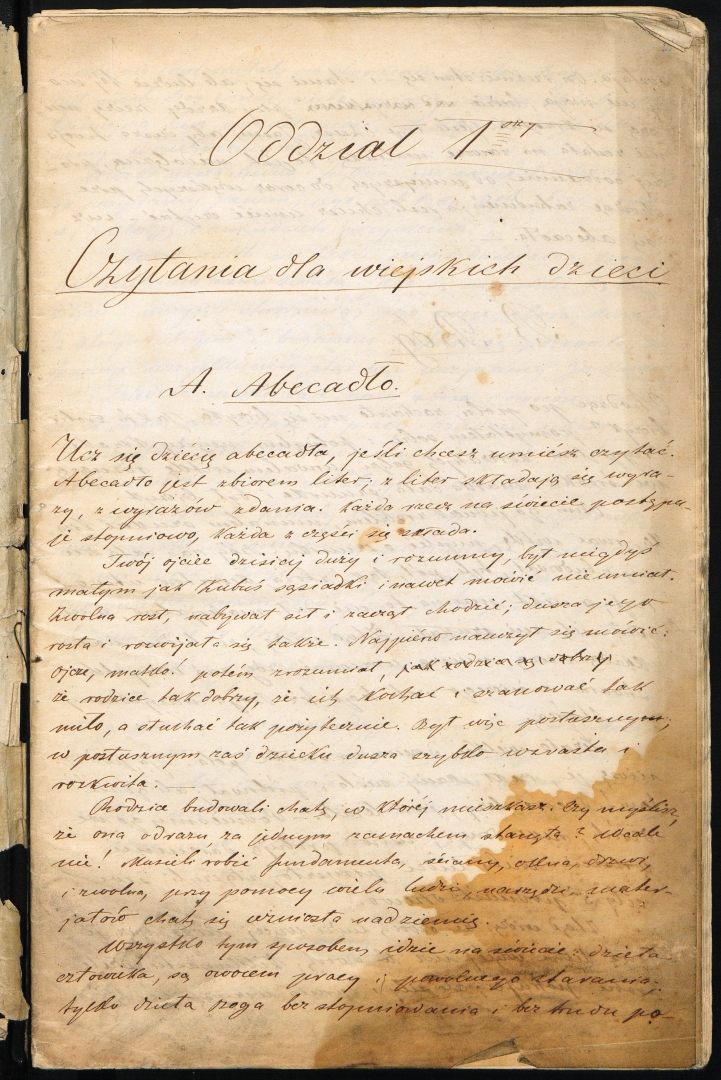 Oddział 1szy
Czytania dla wiejskich dzieci
A. Abecadło.
Ucz się dziecię abecadła, jeśli chcesz umiész czytać.
Abecadło jest zbiorem liter; z liter składają się wyra-
zy, z wyrazów zdania. Każda rzecz na świecie postępu-
je stopniowo, każda z części się składa.
Twój ojciec dzisiej duży i rozumny, był niegdyś
małym jak Kubuś sąsiadki i nawet mówić nie umiał.
Zwolna rósł, nabywał sił i zaczął chodzić; dusza jego
rosła i rozwijała się także. Najpiérw nauczył się mówić:
Ojcze, matko! potém zrozumiał, jak rodzice są dobrzy
że rodzice tak dobrzy, że ich kochać i szanować tak
miło, a słuchać tak pożytecznie. Był więc posłusznym,
w posłusznym zaś dziecku dusza szybko wzrasta i
rozkwita. —
Rodzice budowali chatę, w któréj mieszkasz. Czy myślisz,
że ona odrazu za jednym zamachem stanęła? Wcale
nie! Musieli robić fundamenta, ściany, okna, drzwi,
i zwolna, przy pomocy wielu ludzi, narzędzi, mater-
jałów chata się wzniosła nad ziemię.
Wszystko tym sposobem idzie na świecie: dzieła
człowieka, są owocem pracy i powolnego starania;
tylko dzieła Boga bez stopniowania i bez trudu po-